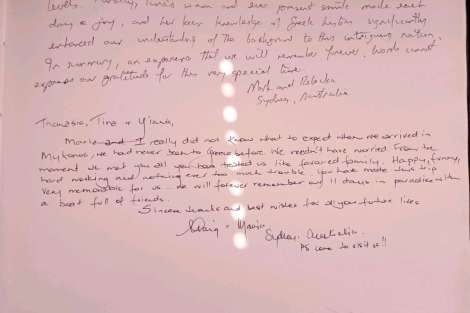 levels. Personally, Tina's warm and ever present smile made each
day a joy, and her keen knowledge of Greek history significantly
enhanced our understanding of the background to this intriguing nation.
In summary, an experience that we will remember forever. Words cannot
express our gratitude for this very special time.
Mark and
Sydney, Australia
Tina &
I really did not know what to expect when we arrived in
Mykonos, we had never been to Greece before. We needn't have worried. From the
moment we met you all you have treated us like favored family. Happy, funny,
hard working and nothing ever too much trouble. You have made this trip
very memorable for us. We will forever remember our 11 days in paradise with
a boat full of friends.
Sincere thanks and best wishes for all your future lives
Craig + Maria
Sydney Australia.
PS come to visit us!!